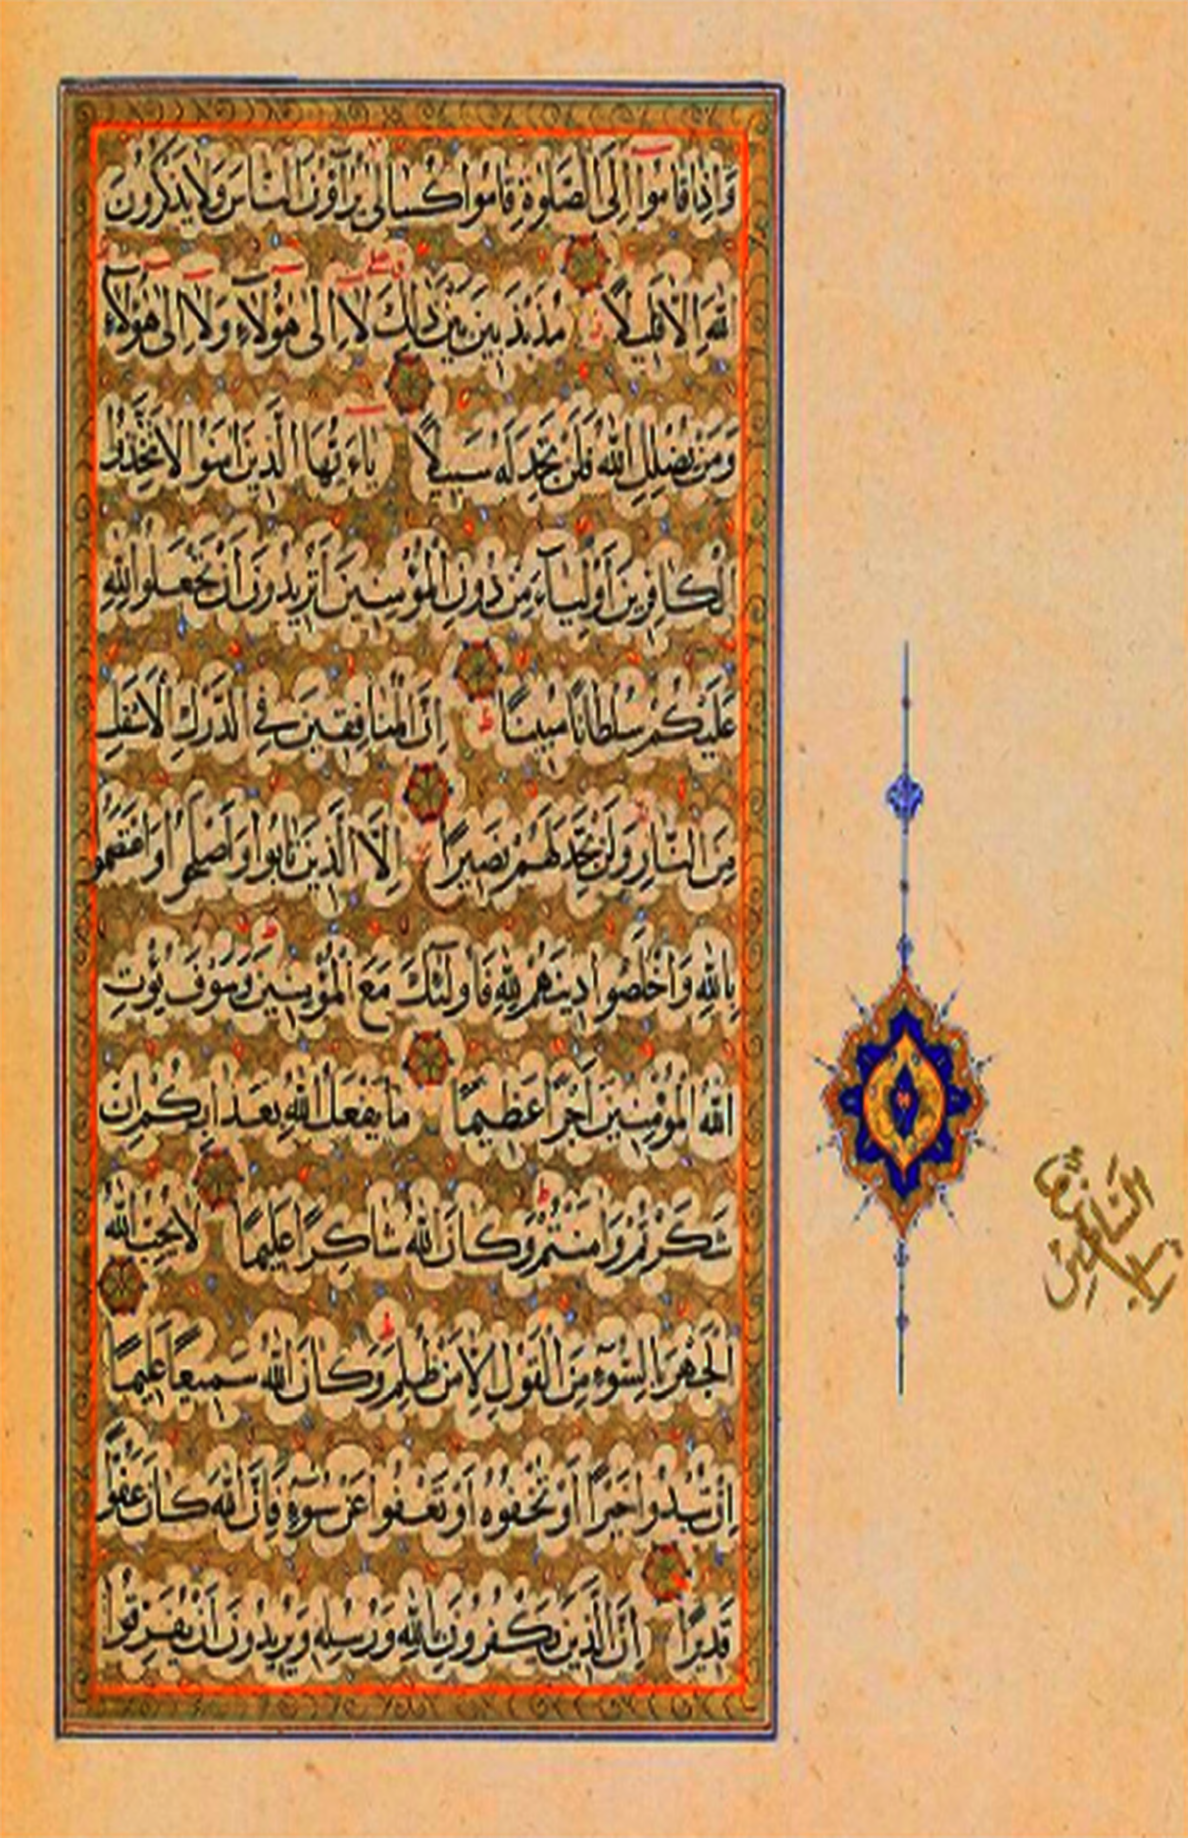 وَإِذَا قَامُوا إِلَى الصَّلٰوةِ قَامُوا كُسَالٰى يُرَاؤُنَ النَّاسَ وَلَا يَذْكُرُونَ
اللّٰهَ إِلَّا قَلِيلًا مُذَبْذَبِينَ بَيْنَ ذٰلِكَ لَا إِلٰى هٰؤُلَاءِ وَلَا إِلٰى هٰؤُلَاءِ
وَمَنْ يُضْلِلِ اللّٰهُ فَلَنْ تَجِدَ لَهُ سَبِيلًا يَاءَيُّهَا الَّذِينَ اٰمَنُوا لَا تَتَّخِذُوا
الْكَافِرِينَ أَوْلِيَاءَ مِنْ دُونِ الْمُؤْمِنِينَ أَتُرِيدُونَ أَنْ تَجْعَلُوا لِلّٰهِ
عَلَيْكُمْ سُلْطَانًا مُبِينًا إِنَّ الْمُنَافِقِينَ فِي الدَّرْكِ الْأَسْفَلِ
مِنَ النَّارِ وَلَنْ تَجِدَ لَهُمْ نَصِيرًا إِلَّا الَّذِينَ تَابُوا وَأَصْلَحُوا وَاعْتَصَمُوا
بِاللّٰهِ وَأَخْلَصُوا دِينَهُمْ لِلّٰهِ فَأُولٰئِكَ مَعَ الْمُؤْمِنِينَ وَسَوْفَ يُؤْتِ
اللّٰهُ الْمُؤْمِنِينَ أَجْرًا عَظِيمًا مَا يَفْعَلُ اللّٰهُ بِعَذَابِكُمْ إِنْ
شَكَرْتُمْ وَاٰمَنْتُمْ وَكَانَ اللّٰهُ شَاكِرًا عَلِيمًا لَا يُحِبُّ اللّٰهُ
الْجَهْرَ بِالسُّوءِ مِنَ الْقَوْلِ إِلَّا مَنْ ظُلِمَ وَكَانَ اللّٰهُ سَمِيعًا عَلِيمًا
إِنْ تُبْدُوا خَيْرًا أَوْ تُخْفُوهُ أَوْ تَعْفُوا عَنْ سُوءٍ فَإِنَّ اللّٰهَ كَانَ عَفُوًّا
قَدِيرًا إِنَّ الَّذِينَ يَكْفُرُونَ بِاللّٰهِ وَرُسُلِهِ وَيُرِيدُونَ أَنْ يُفَرِّقُوا